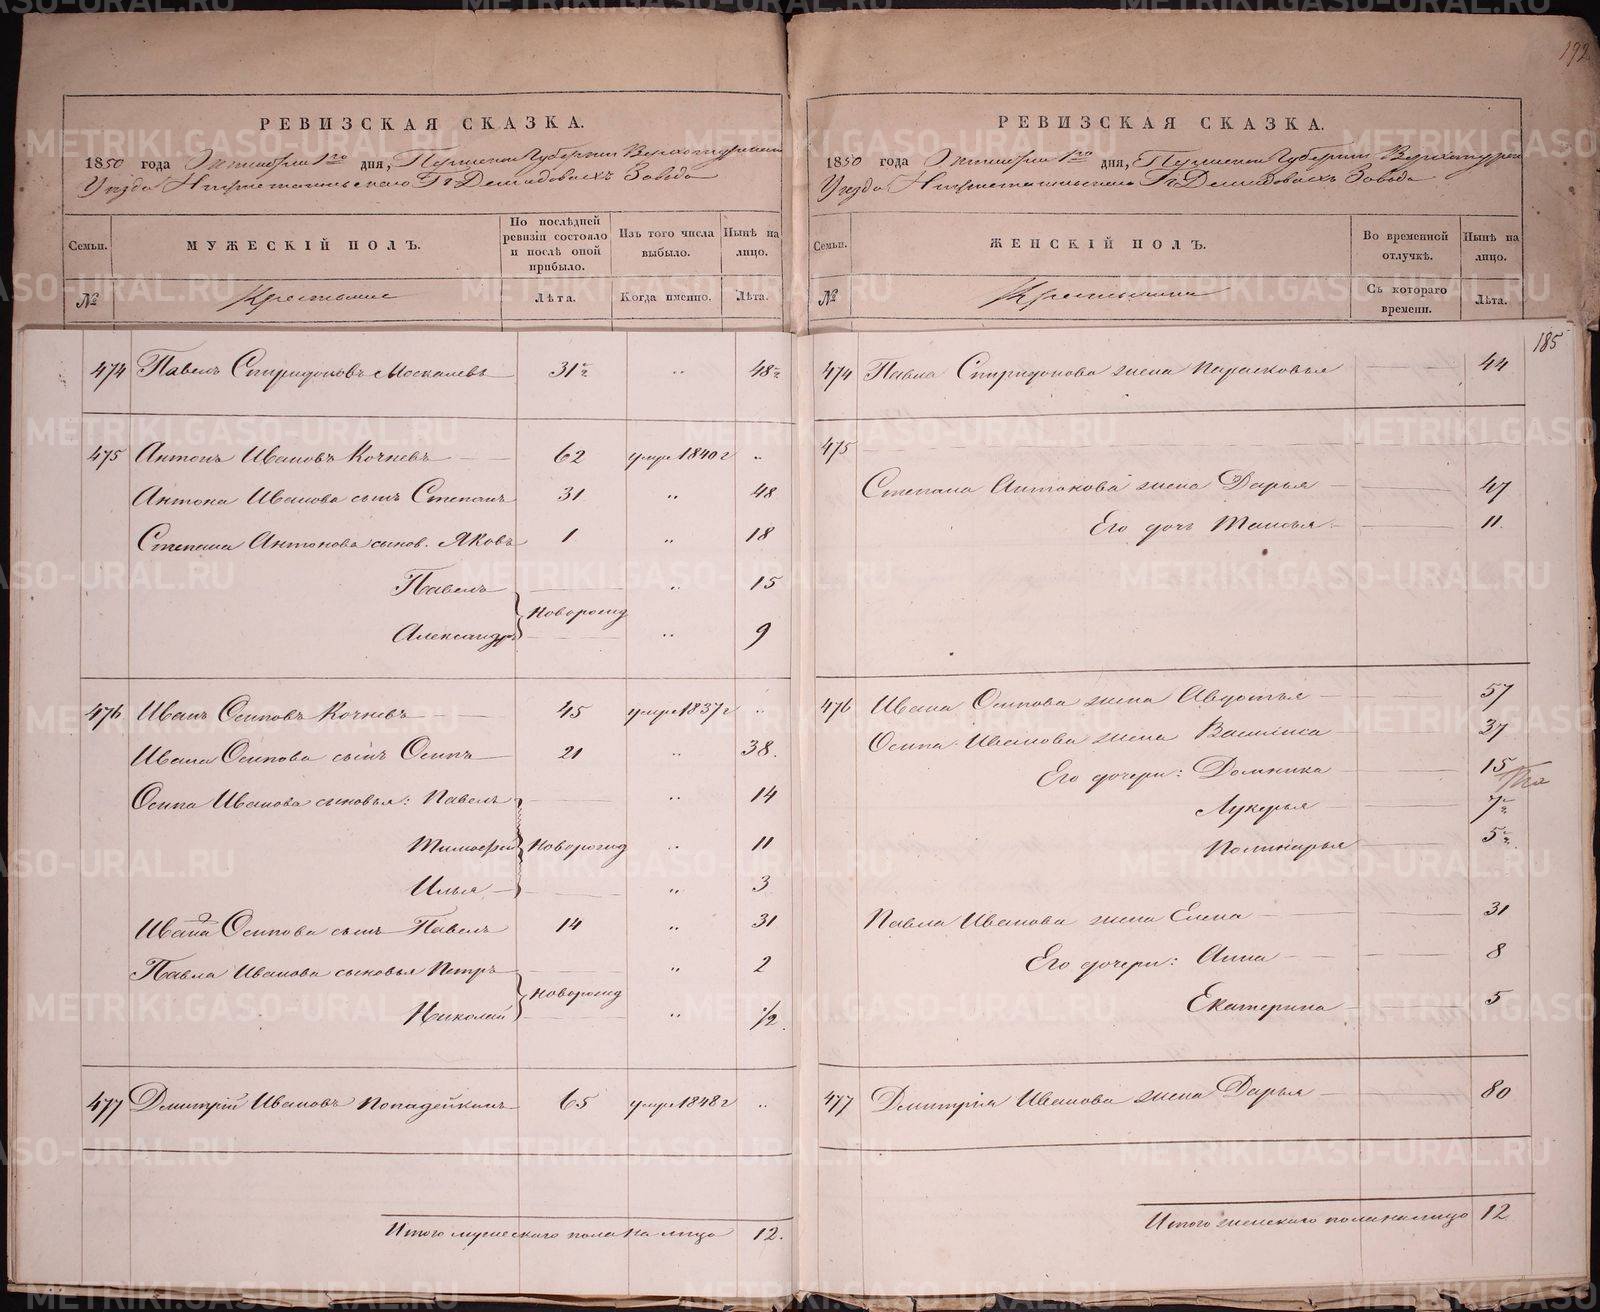 192
РЕВИЗСКАЯ СКАЗКА.
1850 года Октября 1го дня, Пермской Губернии Верхотурскаго
Уезда Нижнетагильскаго Гг Демидовыхъ Завода
Семьи.
МУЖЕСКІЙ ПОЛЪ.
По послѣдней ревизіи состояло и послѣ оной прибыло.
Изъ того числа выбыло.
Нынѣ на лицо.
№
Крестьяне
Лѣта.
Когда именно.
Лѣта.
474 Павелъ Спиридоновъ Москалевъ 31½ " 48½
475 Антонъ Ивановъ Кочневъ 62 умре 1840 г "
Антона Иванова сынъ Степанъ 31 " 48
Степана Антонова сынов. Яковъ 1 " 18
Павелъ " 15
новорожд
Александръ " 9
476 Иванъ Осиповъ Кочневъ 45 умре 1837 г "
Ивана Осипова сынъ Осипъ 21 " 38.
Осипа Иванова сыновья: Павелъ " 14
Тимофей Новорожд " 11
Илья " 3
Ивана Осипова сынъ Павелъ 14 " 31
Павла Иванова сыновья Петръ " 2
новорожд
Николай " 1/2
477 Дмитрій Ивановъ Попадейкинъ 65 умре 1848 г "
Итого мужескаго пола на лицо 12.
РЕВИЗСКАЯ СКАЗКА.
1850 года Октября 1го дня, Пермской Губернии Верхотурскаго
Уезда Нижнетагильскаго Гг Демидовыхъ Завода
Семьи.
ЖЕНСКІЙ ПОЛЪ.
Во временной отлучкѣ.
Нынѣ на лицо.
№
Крестьянки
Съ котораго времени.
Лѣта.
185
474 Павла Спиридонова жена Парасковья 44
475
Степана Антонова жена Дарья 47
Его дочь Таисья 11.
476 Ивана Осипова жена Авдотья 57
Осипа Иванова жена Василиса 37
Его дочери: Домника 15
Лукерья 7½
Полинарья 5½
Павла Иванова жена Елена 31
Его дочери: Анна 8
Екатерина 5
477 Дмитрія Иванова жена Дарья 80
Итого женскаго пола на лицо 12
METRIKI.GASO-URAL.RU